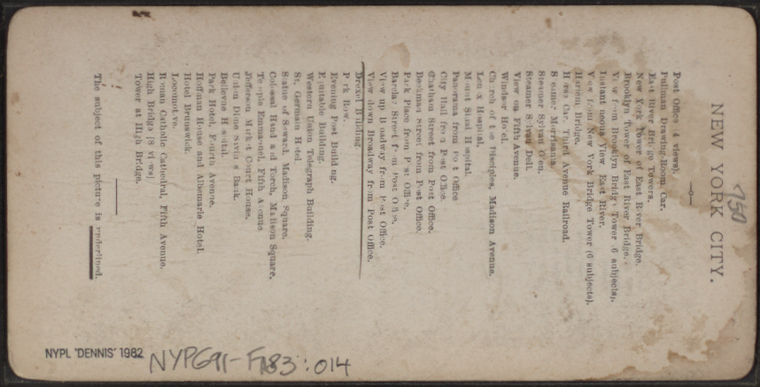 750
NEW YORK CITY.
Post Office (4 views).
Pullman Drawing-Room Car.
East River Bridge Towers.
New York Tower of East River Bridge.
Brooklyn Tower of East River Bridge.
View from Brooklyn Bridge Tower (6 subjects).
Instantaneous View, East River.
View from New York Bridge Tower (6 subjects).
Harlem Bridge.
Horse Car, Third Avenue Railroad.
Steamer Morrisania.
Steamer Sylvan Glen.
Steamer Sylvan Dell.
View on Fifth Avenue.
Windsor Hotel.
Church of the Disciples, Madison Avenue.
Lenox Hospital.
Mount Sinai Hospital.
Panorama from Post Office
City Hall from Post Office.
Chatham Street from Post Office.
Beekman Street from Post Office.
Park Place from Post Office.
Barclay Street from Post Office.
View up Broadway from Post Office.
View down Broadway from Post Office.
Drexel Building
Park Row.
Evening Post Building.
Equitable Building.
Western Union Telegraph Building.
St. Germain Hotel.
Statue of Seward, Madison Square.
Colossal Hand and Torch, Madison Square.
Temple Emmanuel, Fifth Avenue
Jefferson Market Court House.
Union Dime Savings Bank.
Belvedere
Park Hotel, Fourth Avenue.
Hoffman House and Albemarle Hotel.
Hotel Brunswick.
Locomotive.
Roman Catholic Cathedral, Fifth Avenue.
High Bridge [8 views]
Tower at High Bridge.
The subject of this picture is underlined.
NYPL "DENNIS" 1982
NYPG91-F183:014